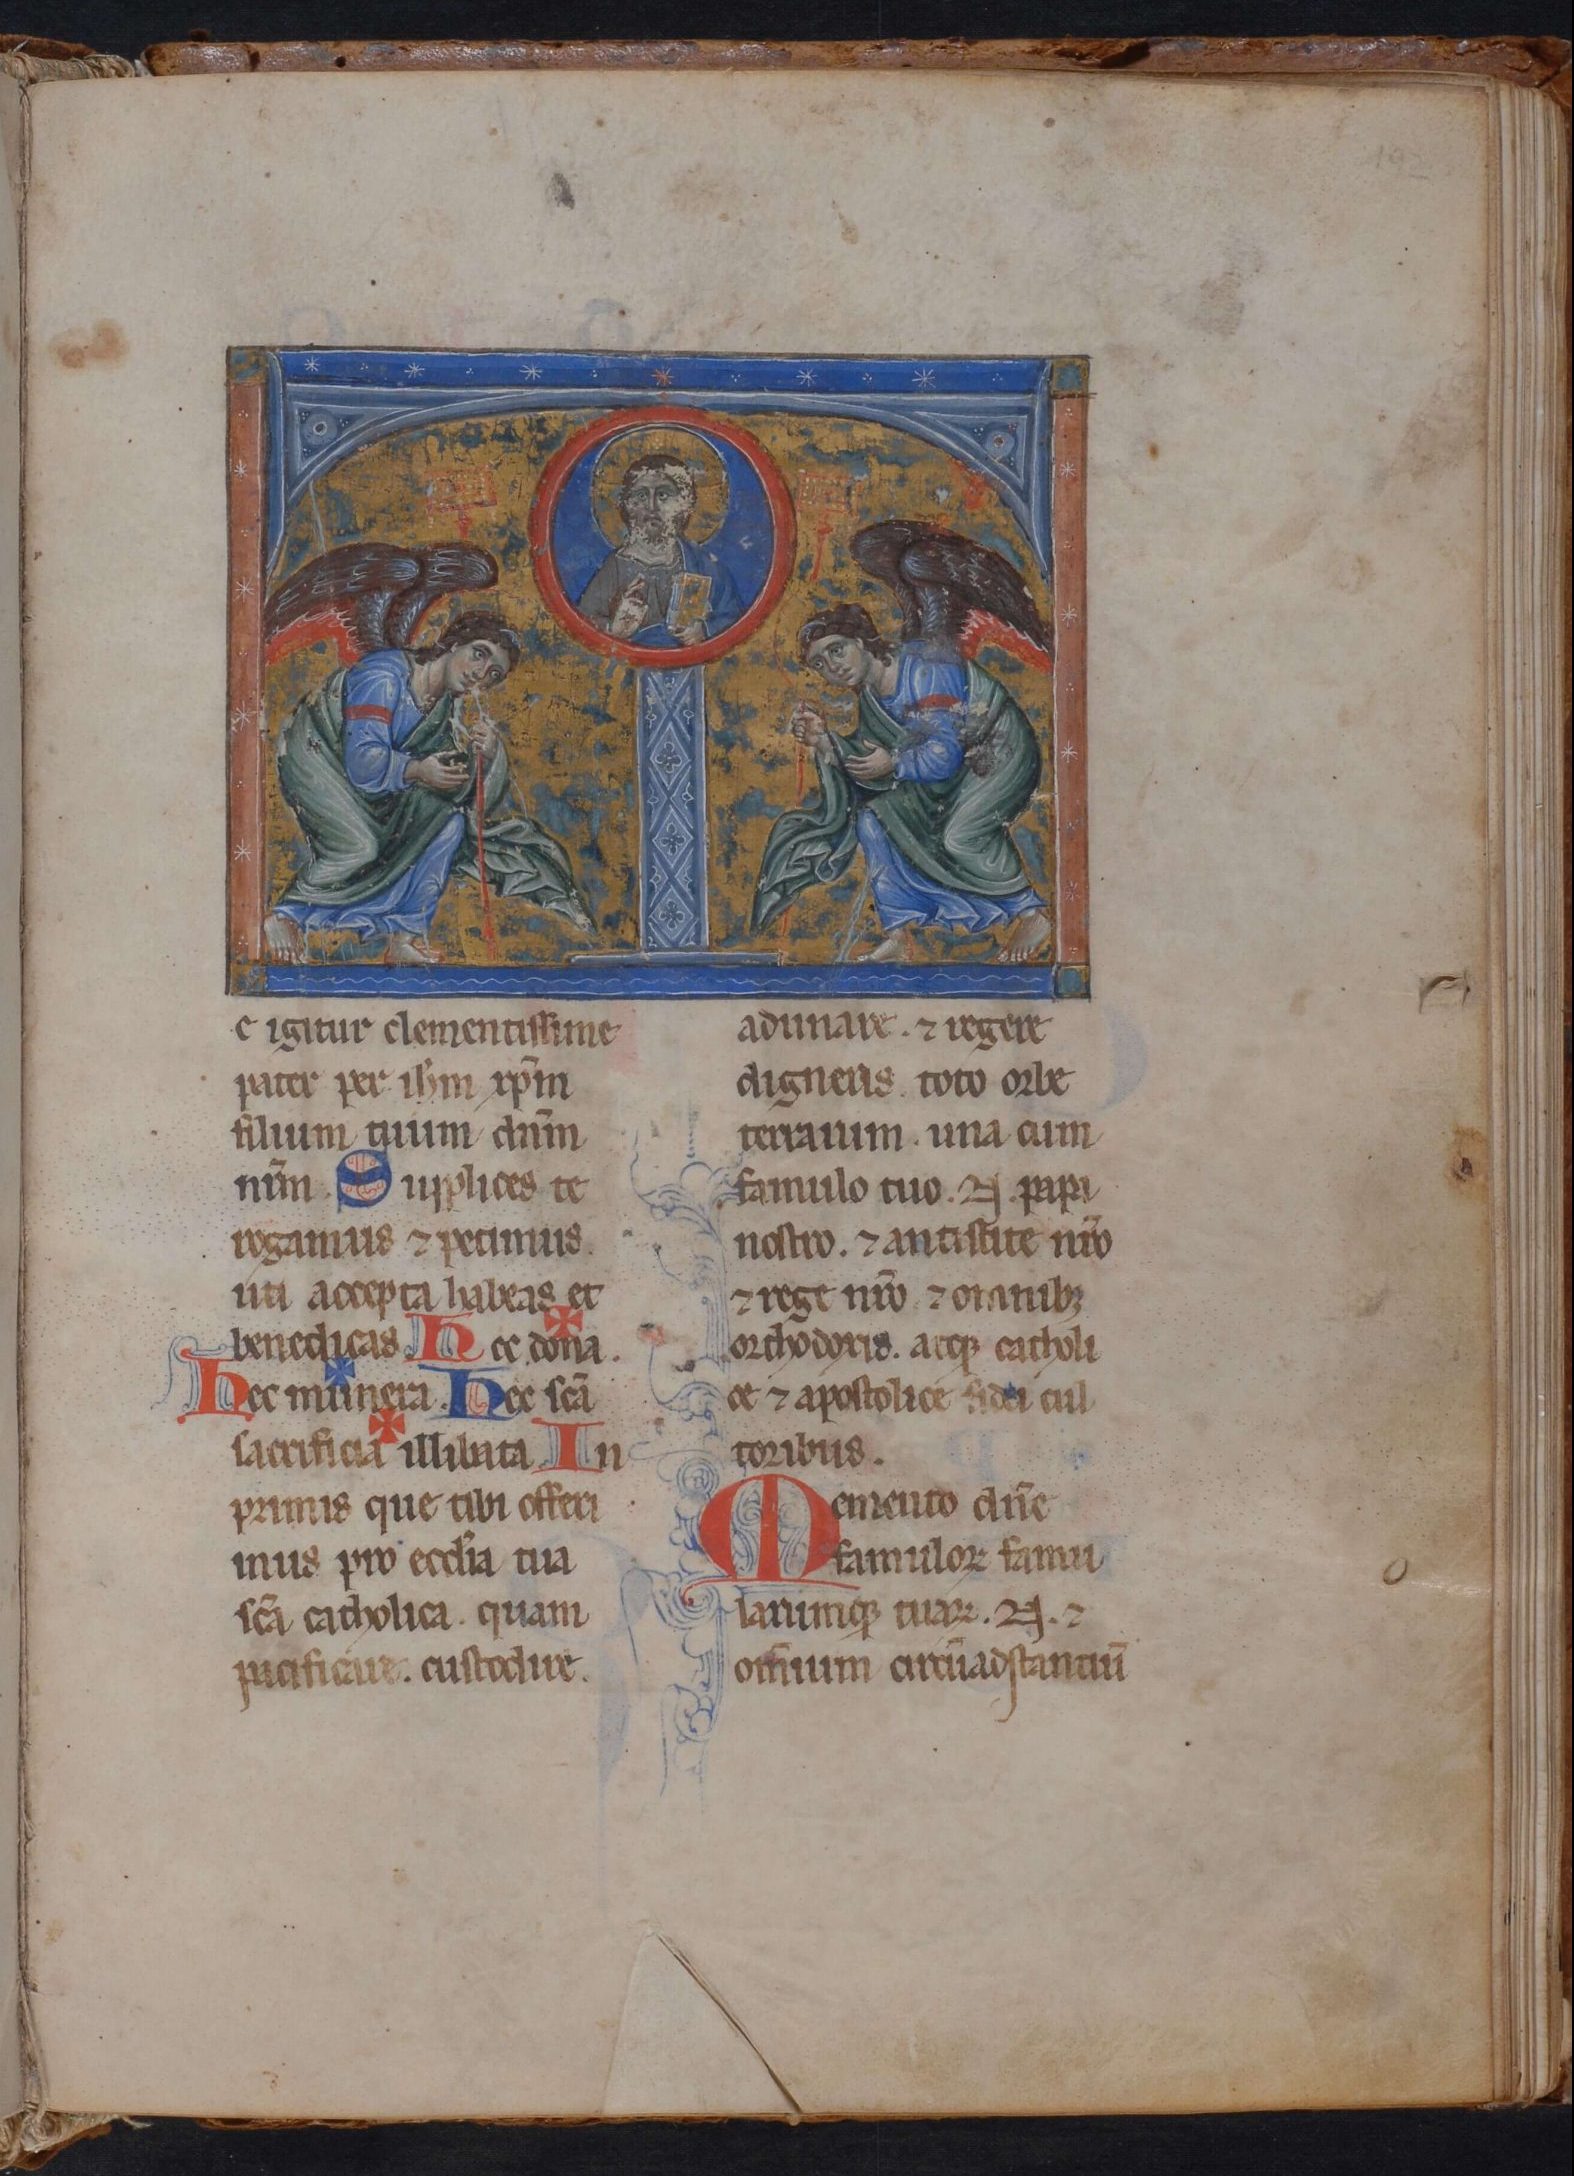 192
T
e igitur clementissime
pater per ihm xp̄m
filium tuum dn̄m
nr̄m. Supplices te
rogamus ⁊ petimus.
uti accepta habeas et
benedicas. hec dona.
hec munera. hec sc̄a
sacrificia illibata. In
primis que tibi offeri
mus pro eccl̄ia tua
sc̄a catholica. quam
pacificare. custodire.
adunare. ⁊ regere
digneris toto orbe
terrarum. una cum
famulo tuo. N. papa
nostro. ⁊ antistite nr̄o
⁊ rege nr̄o ⁊ omnibꝫ
orthodoxis. atqꝫ catholi
ce ⁊ apostolice fidei cul
toribus.
Memento dn̄e
famuloꝝ famu
larumqꝫ tuaꝝ. N. ⁊
om̄ium circū adstantiū